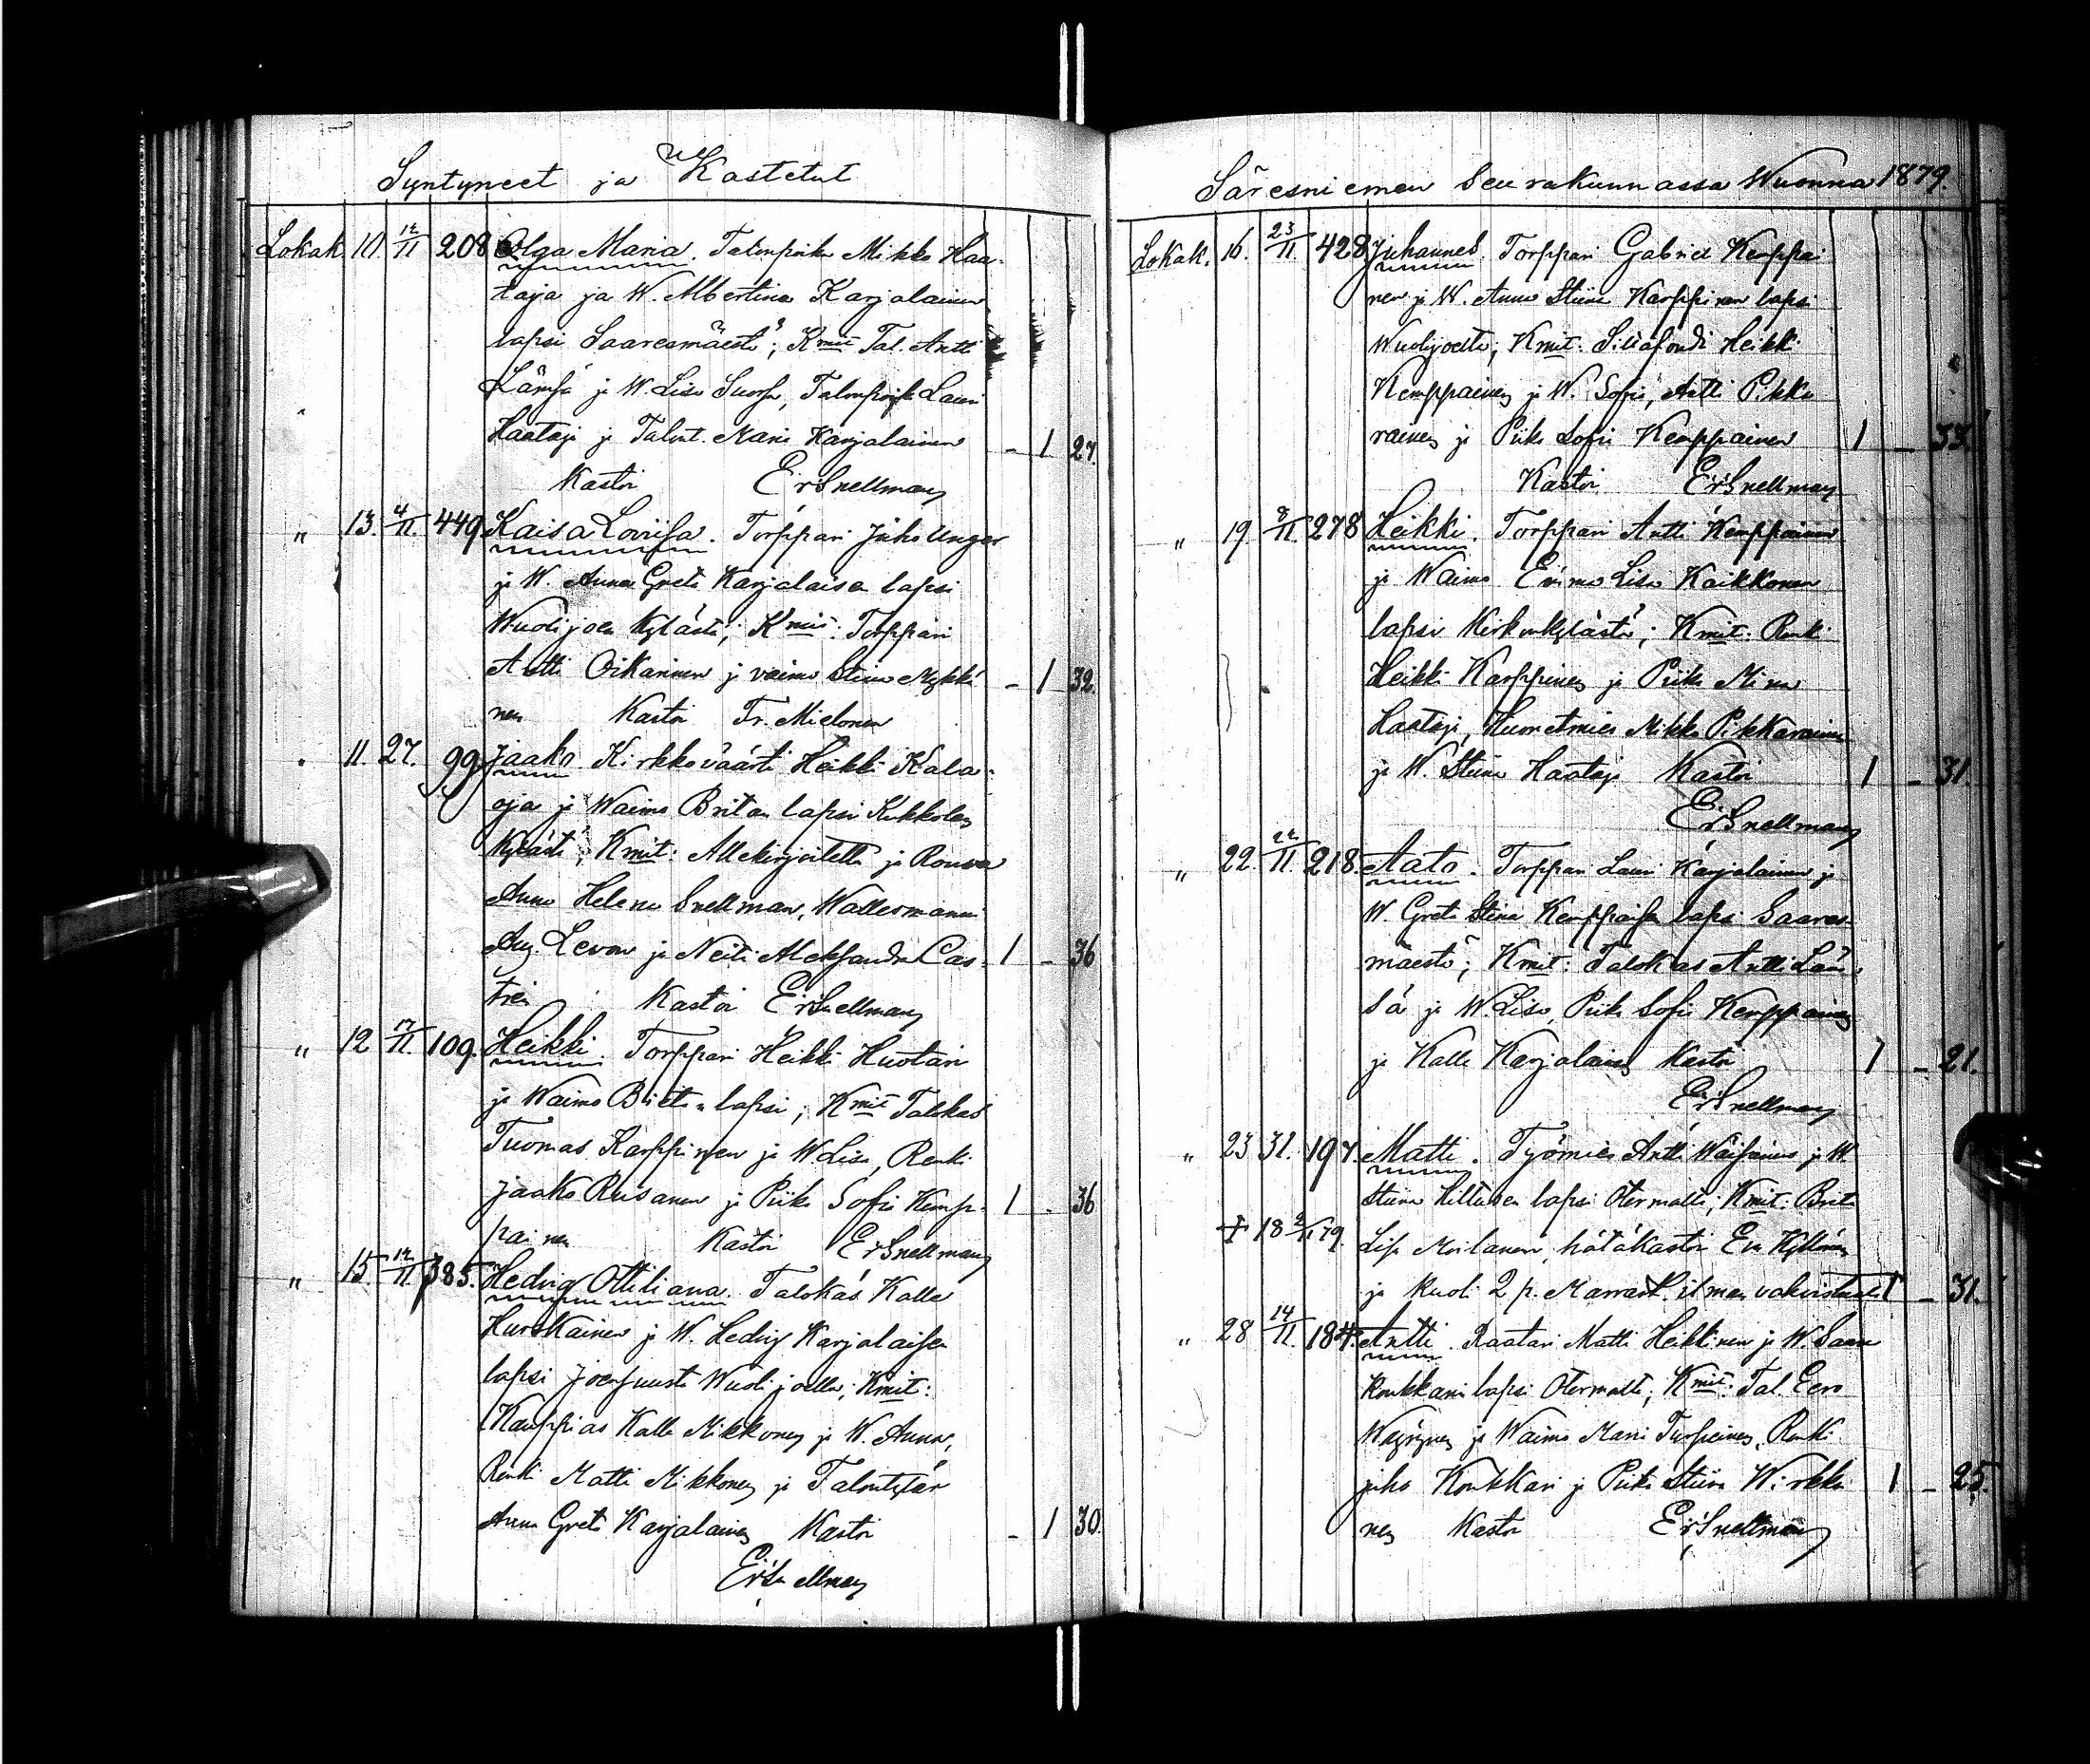 Syntyneet ja Kastetut
Lokak. 10. 12/11 208 Olga Maria. Talonpoika Mikko Haa-
taja ja W. Albertina Karjalainen
lapsi Saaresmäestä; Kmit Tal. Antti
Lämsä ja W. Liisa Suorsa, Talonpoik. Lauri
Haataja ja Talont. Maria Karjalainen - 1 27.
Kastoi Er Snellman
" 13. 4/11. 449. Kaisa Lovisa. Torppari Juho Unger
ja W. Anna Greta Karjalaisen lapsi
Wuolijoen kylästä; Kmit: Torppari
Antti Oikarinen ja vaimo Stina Mykkä - 1 32.
nen Kastoi Fr. Mielonen
" 11. 27. 99. Jaako. Kirkkoväärti Heikki Kala-
oja ja Waimo Britan lapsi Kukkolan
kylästä; Kmit: Allekirjoitettu ja Rouva
Anna Helena Snellman, Wallesmanni
Aug. Levon ja Neiti Aleksandra Cas- 1 - 36
trén Kastoi Er Snellman
" 12 17/11. 109. Heikki. Torppari Heikki Huotari
ja Waimo Brita lapsi; Kmit Talokas
Tuomas Karppinen ja W. Liisa, Renki
Jaako Rusanen ja Piika Sofia Kemp- 1 - 36
painen Kastoi Er Snellman
" 15. 12/11 385. Hedvig Ottiliana. Talokas Kalle
Hurskainen ja W. Hedvig Karjalaisen
lapsi Joensuusta Wuolijoella; Kmit:
Kauppias Kalle Mikkonen ja W. Anna,
Renki Matti Mikkonen ja Talontytär
Anna Greta Karjalainen Kastoi - 1 30.
Er Snellman
Säresniemen Seurakunnassa Wuonna 1879.
Lokak. 16. 23/11 428 Juhannes. Torppari Gabriel Kemppai
nen ja W. Anna Stiina Karppinen lapsi
Wuolijoelta; Kmit: Heikki
Kemppainen ja W. Sofia, Antti Pikku
rainen ja Piika Sofia Kemppainen 1 - 33.
Kastoi Er Snellman
" 19. 8/11. 278 Heikki. Torppari Antti Kemppainen
ja Waimo Liisa Kaikkonen
lapsi Kirkonkylästä; Kmit: Renki
Heikki Karppinen ja Piika Mina
Haataja, Huonetmies Mikko Pikkarainen
ja W. Stina Haataja Kastoi 1 - 31.
Er Snellman
" 22. 22/11. 218. Aato. Torppari Lauri Karjalainen ja
W. Greta Stina Kemppaisen lapsi Saares-
mäestä; Kmit: Talokas Antti Läm-
sä ja W. Liisa, Piika Sofia Kemppainen
ja Kalle Karjalainen Kastoi 1 - 21.
Er Snellman
" 23 31. 197. Matti. Työmies Antti Wäisänen ja W.
Stiina Kiltusen lapsi Otermalta; Kmit: Brita
† 18 2/11 79. Lisa Moilanen, hätäkastoi Eva Kyllönen
ja kuoli 2 p. Marrask. ilman vahvistusta 1 - 31.
" 28 14/11. 184. Antti. Raatari Matti Heikkinen ja W. Saara
Koukkarin lapsi Otermalta; Kmit: Tal. Eero
Wäyrynen ja Waimo Maria Turpeinen, Renki
juho Koukkari ja Piika Stiina Wirkku 1 - 25.
nen Kastoi Er Snellman